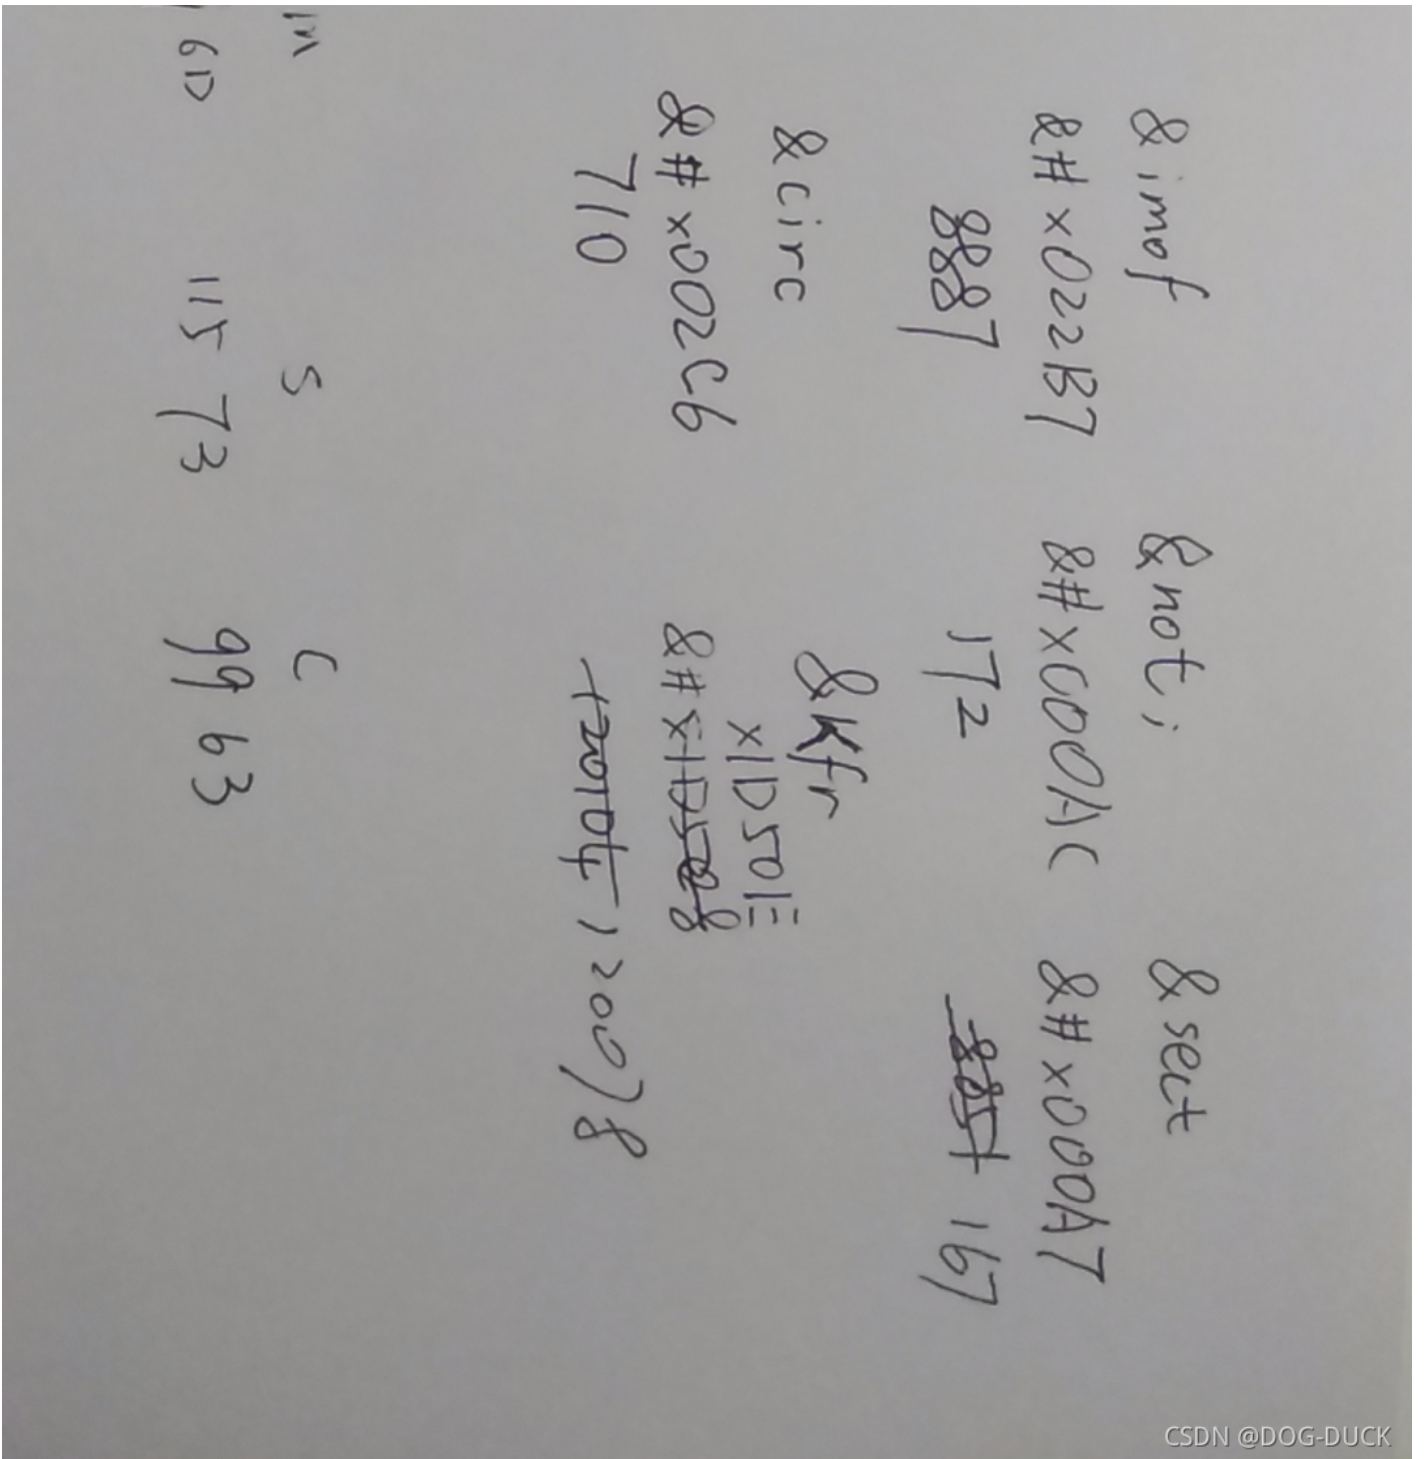 &imof &not; &sect
&#x022B7 &#x000AC &#x000A7
8887 172 167
&circ &Kfr
x1D501E
&#x002C6 &#x1D508
710 120078
m s c
6D 115 73 99 63
CSDN @DOG-DUCK